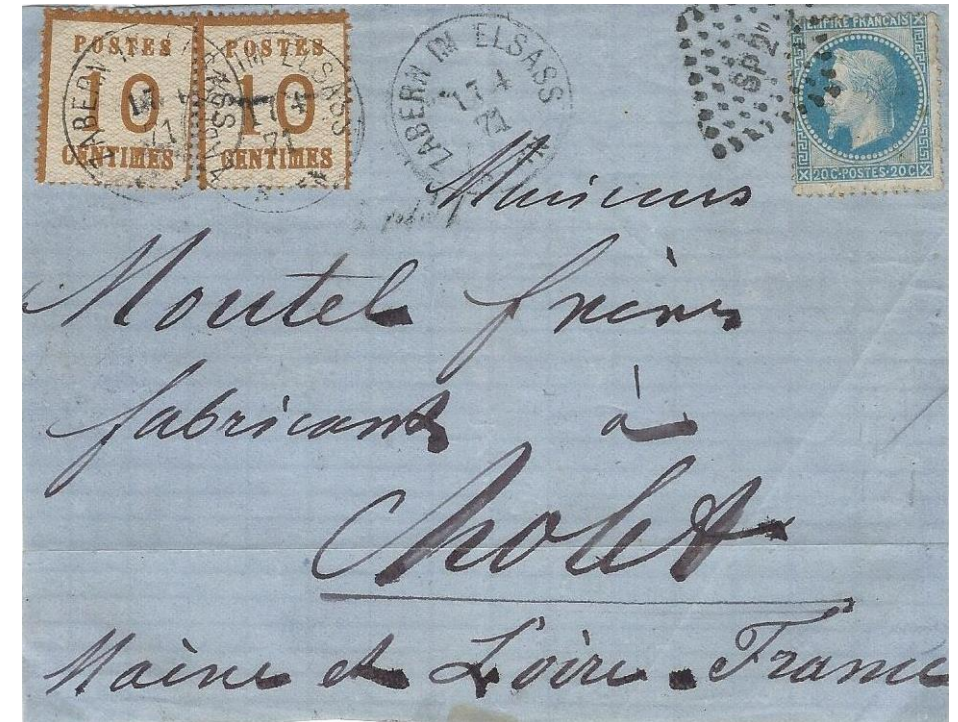 POSTES
10
CENTIMES
POSTES
10
CENTIMES
ZABERN IM ELSASS
17 4
71
SPP2°
EMPIRE FRANÇAIS
20 C·POSTES·20 C
Messieurs
Moutel frères
fabricants à
Cholet
Maine et Loire. France